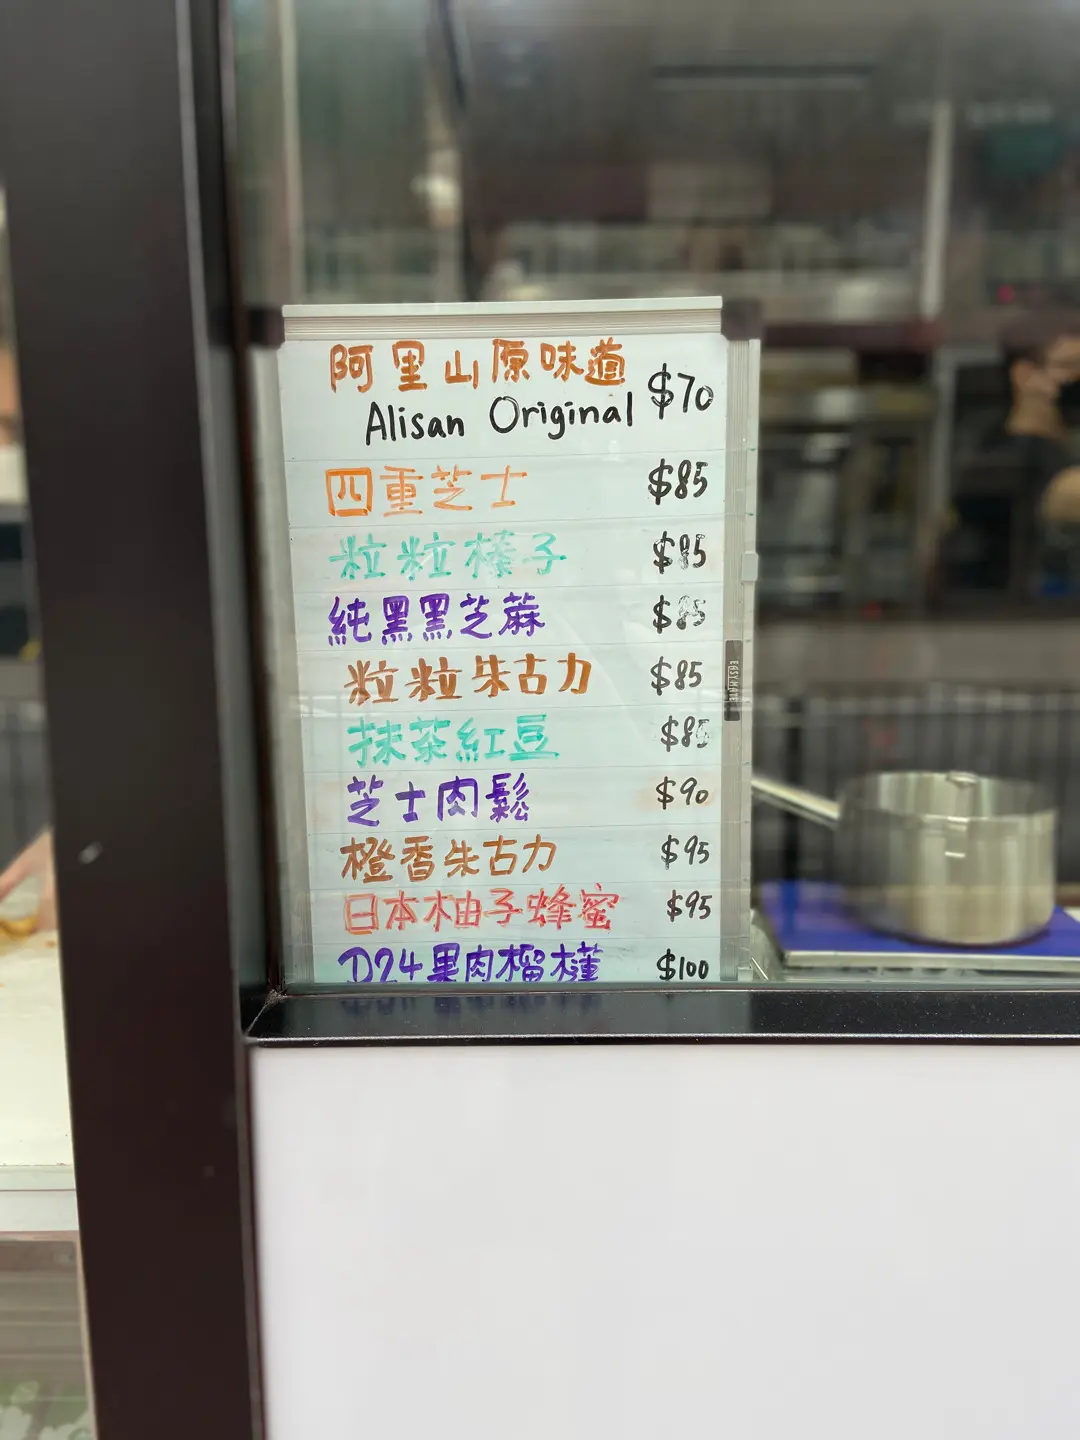 阿里山原味道
Alisan Original $70
四重芝士 $85
粒粒榛子 $85
純黑黑芝蔴 $85
粒粒朱古力 $85
抹茶紅豆 $85
芝士肉鬆 $90
橙香朱古力 $95
日本柚子蜂蜜 $95
D24果肉榴槤 $100
EASIMATE